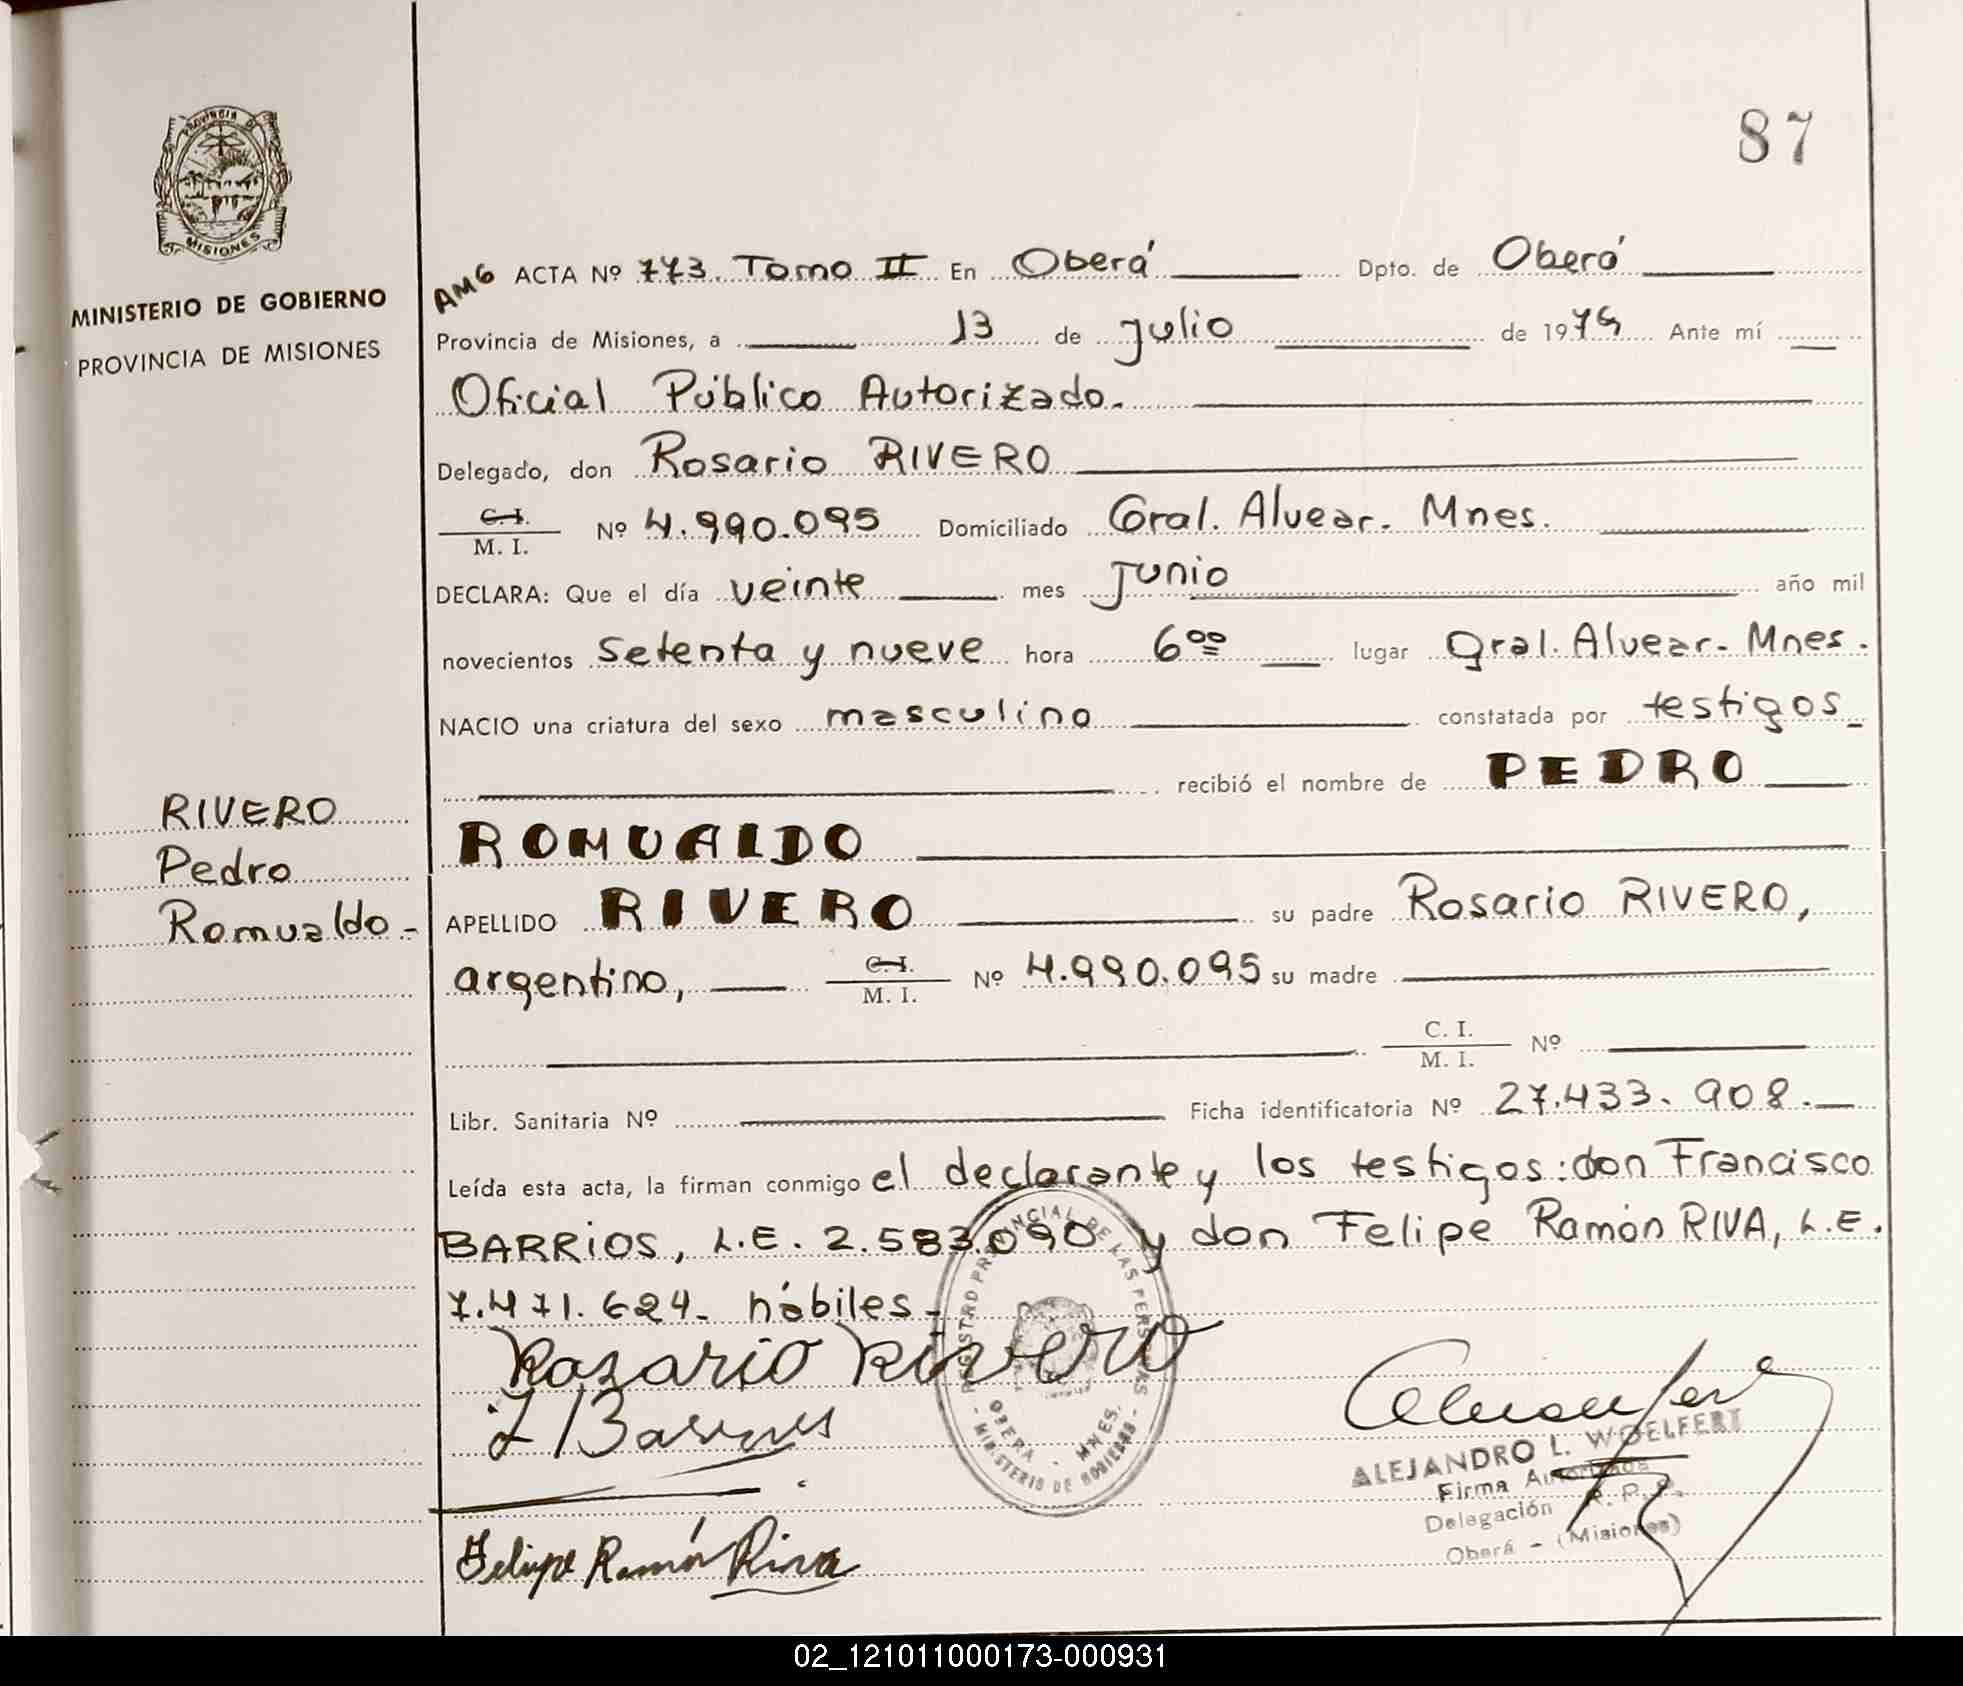 87
PROVINCIA DE
MISIONES
MINISTERIO DE GOBIERNO
PROVINCIA DE MISIONES
AMG ACTA Nº 773 Tomo II En Oberá Dpto. de Oberá
Provincia de Misiones, a 13 de julio de 1979 Ante mí
Oficial Público Autorizado.
Delegado, don Rosario RIVERO
C.I.
M. I. Nº 4.990.095 Domiciliado Gral. Alvear. Mnes.
DECLARA: Que el día veinte mes junio año mil
novecientos setenta y nueve hora 6 00 lugar Gral. Alvear. Mnes.
NACIO una criatura del sexo masculino constatada por testigos
recibió el nombre de PEDRO
ROMUALDO
RIVERO
Pedro
Romualdo-
APELLIDO RIVERO su padre Rosario RIVERO,
argentino, C.I.
M. I. Nº 4.990.095 su madre
C. I.
M. I. Nº
Libr. Sanitaria Nº Ficha identificatoria Nº 27.433.908.
Leída esta acta, la firman conmigo el declarante y los testigos: don Francisco
BARRIOS, L.E. 2.583.090 y don Felipe Ramón RIVA, L.E.
7.471.624- hábiles-
Rosario Rivero
F Barrios
Felipe Ramón Riva
REGISTRO PROVINCIAL DE LAS PERSONAS
OBERA - MNES.
- MINISTERIO DE GOBIERNO -
ALEJANDRO L. WOELFERT
Firma Autorizada
Delegación R. P. P.
Oberá - (Misiones)
02_121011000173-000931